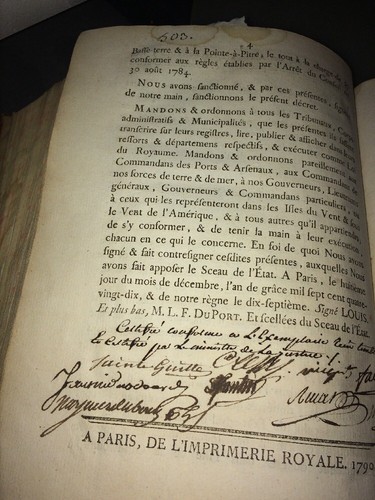 503.
4
Basse terre & à la Pointe-à-Pitre; le tout à la charge de se
conformer aux règles établies par l'Arrêt du Conseil
30 août 1784.
NOUS avons sanctionné, & par ces présentes, signées
de notre main, sanctionnons le présent décret.
MANDONS & ordonnons à tous les Tribunaux, Corps
administratifs & Municipalités, que les présentes ils fassent
transcrire sur leurs registres, lire, publier & afficher dans leurs
ressorts & départemens respectifs, & exécuter comme loi
du Royaume. Mandons & ordonnons pareillement aux
Commandans des Ports & Arsenaux, aux Commandans de
nos forces de terre & de mer, à nos Gouverneurs, Lieutenans
généraux, Gouverneurs & Commandans particuliers, ou
à ceux qui les représenteront dans les Isles du Vent & sous
le Vent de l'Amérique, & à tous autres qu'il appartiendra,
de s'y conformer, & de tenir la main à leur exécution,
chacun en ce qui le concerne. En foi de quoi Nous avons
signé & fait contresigner cesdites présentes, auxquelles Nous
avons fait apposer le Sceau de l'État. A Paris, le huitième
jour du mois de décembre, l'an de grâce mil sept cent quatre-
vingt-dix, & de notre règne le dix-septième. Signé LOUIS.
Et plus bas, M. L. F. DUPORT. Et scellées du Sceau de l'État.
Certifié conforme à l'Exemplaire
et Certifié par le ministre de la justice
Sainte Guitte
A PARIS, DE L'IMPRIMERIE ROYALE. 1790